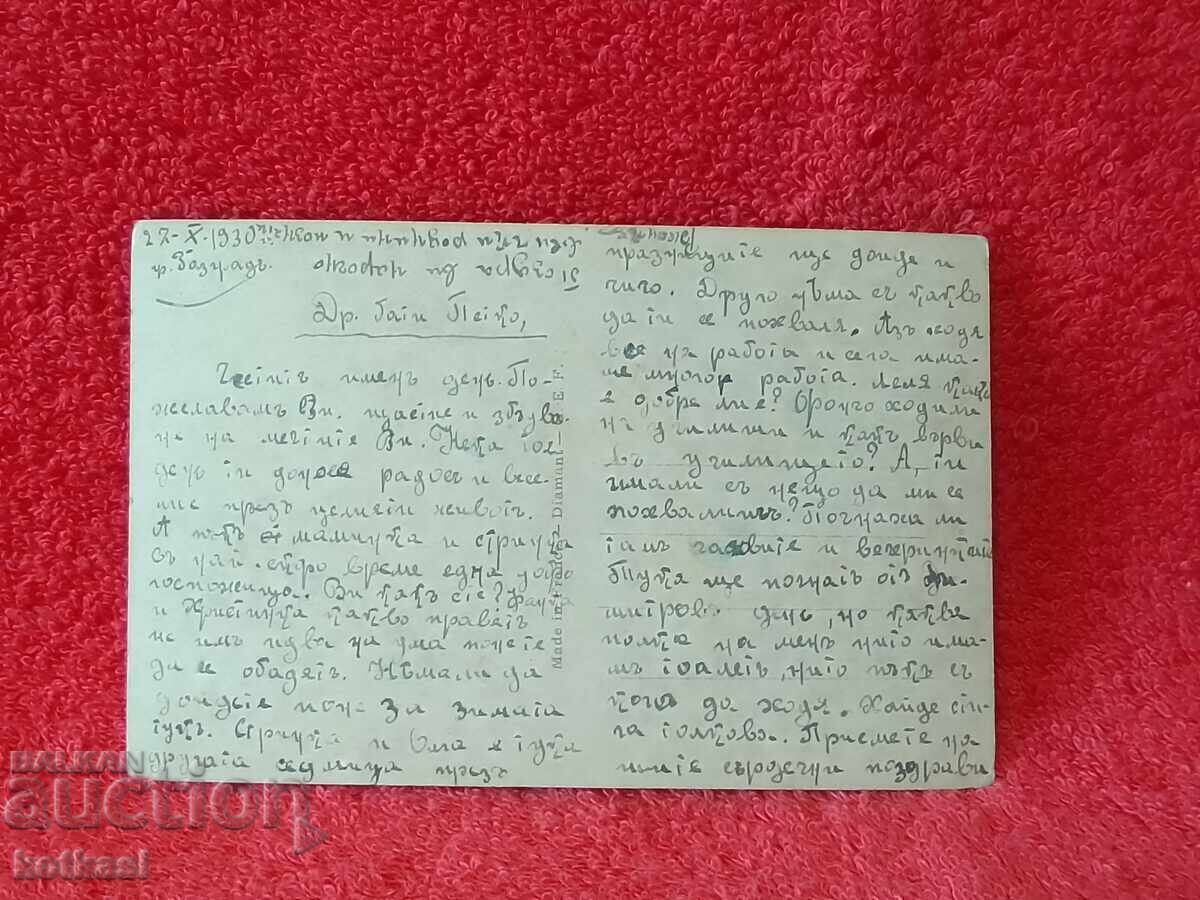 27-X-1930
гр. Разградъ.
Др. бати Петко,
Честитъ именъ день. По-
желавамъ Ви. щастие и сбудва-
не на мечтите Ви. Нека тоя
день ти донесе радость и весе-
лие презъ целия ти животъ.
А пъкъ мамичка и стрина
съ най-скоро време една добра
госпожица. Ви какъ сте?
и Христинка какво правятъ
не имъ идва на ума поне те
да се обадятъ. Нѣма ли да
дойдете поне за зимата
тукъ. Стринка и Оля е тука
другата седмица презъ
празницитѣ ще дойде и
чичо. Друго нѣма съ какво
да ти се похваля. Азъ ходя
все на работа и сега има-
ме много работа. Леля какъ
е добре ли е? ходи ли
на училище и какъ върви
въ училището? А, ти
имали съ нещо да ми се
похвалишъ? Почнаха ли
тамъ часовие и вечеринките
Тука ще почнатъ отъ Ди-
митров- день, но каква
полза на менъ нито има-
мъ тоалетъ, нито пъкъ съ
кого да ходя. Хайде сти-
га толкова. Приемете на-
шите сърдечни поздрави
Made in France - Diamant - E. F.
BALKAN
auction
kotkasl